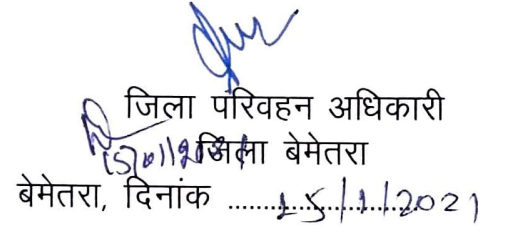 जिला परिवहन अधिकारी
15/01/2021 जिला बेमेतरा
बेमेतरा, दिनांक ........15/1/2021